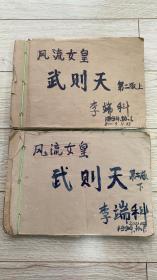 风流女皇
武则天 第二版上
李瑞科
1994.10.6
风流女皇
武则天 第二版
下
李瑞科
1994.10.6